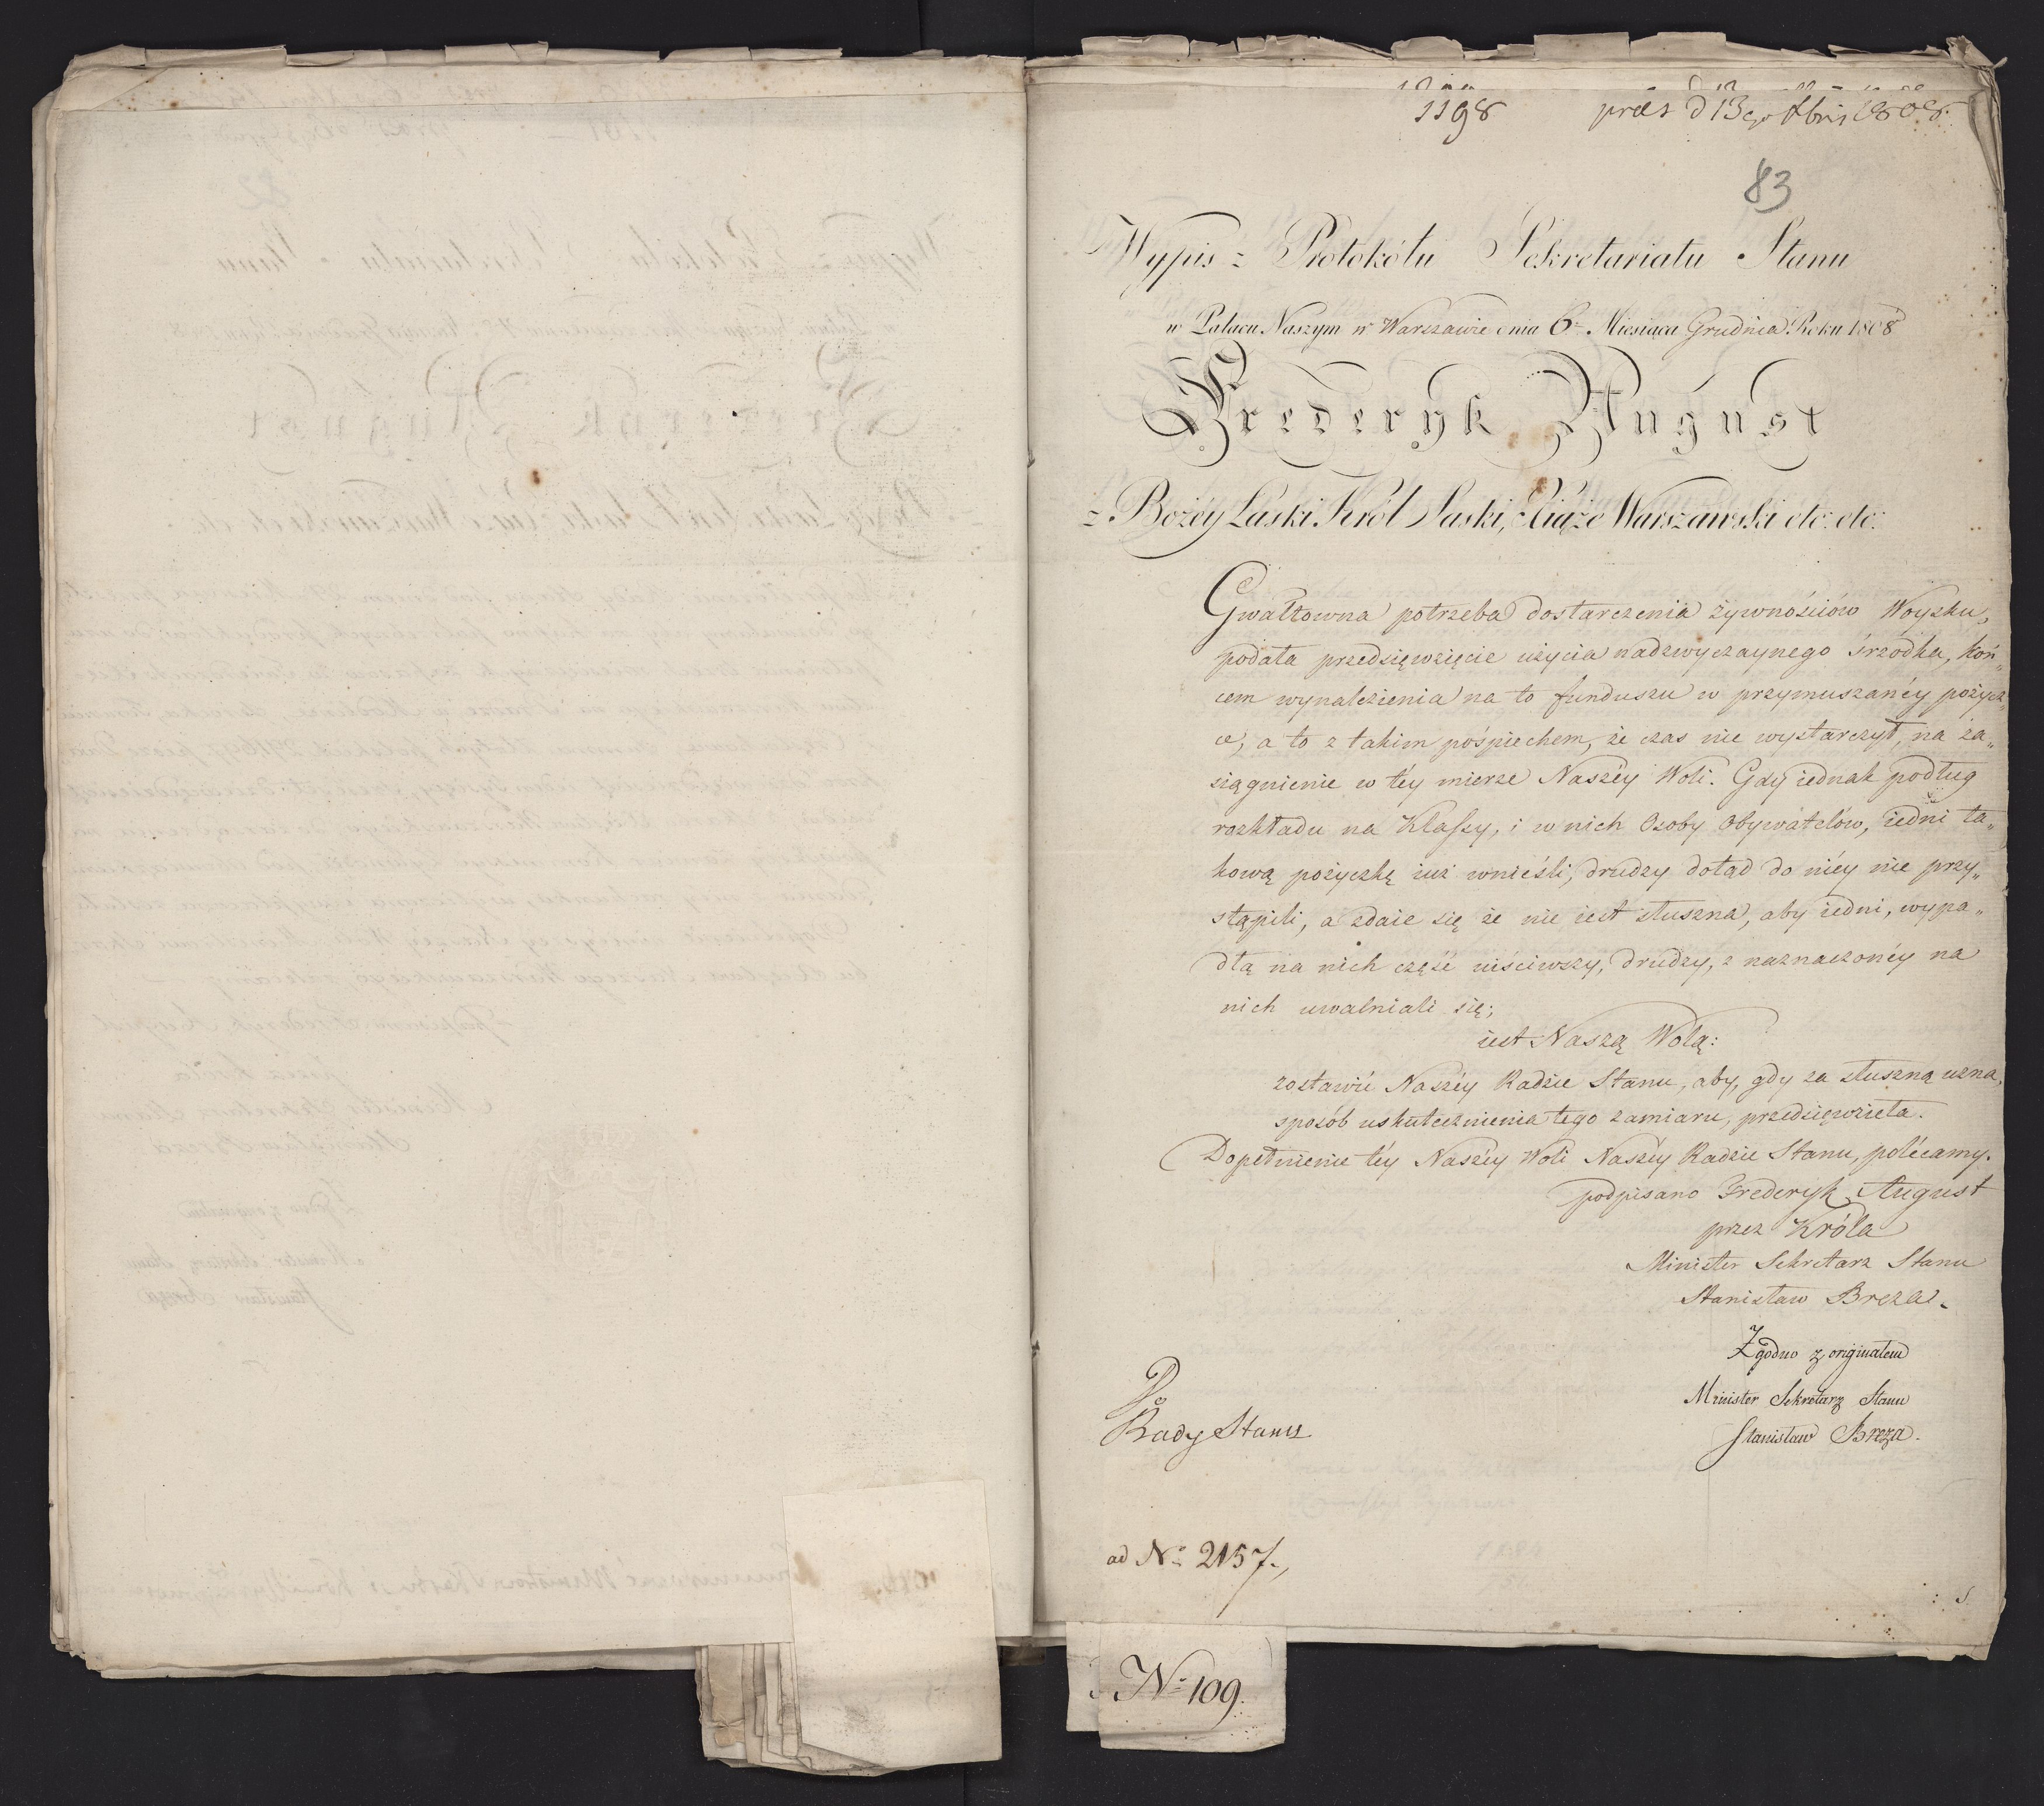 1198 præs d 13go Xbris 1808.
83
Wypis z Protokółu Sekretariatu Stanu
w Pałacu Naszym w Warszawie dnia 6. Miesiąca Grudnia Roku 1808
Frederyk August
z Bożéy Łaski Król Saski, Xiąże Warszawski etc: etc:
Gwałtowna potrzeba dostarczenia żywnościów Woysku,
podała przedsięwzięcie użycia nadzwyczaynego śrzodka, koń„
cem wynalezienia na to funduszu w przymuszanéy pożycz„
ce, a to z takim pośpiechem, że czas nie wystarczył, na za„
siągnienie w téy mierze Naszéy Woli. Gdy iednak podług
rozkładu na Klassy, i w nich Osoby Obywatelów, iedni ta„
kową pożyczkę iuż wnieśli, drudzy dotąd do niéy nie przy„
stąpili, a zdaie się że nie iest słuszna, aby iedni, wypa„
dłą na nich część uiściwszy, drudzy, z naznaczonéy na
nich uwalniali się;
iest Naszą Wolą:
zostawić Naszéy Radzie Stanu, aby, gdy za słuszną uzna,
sposób uskutecznienia tego zamiaru, przedsięwzięła.
Dopełnienie téy Naszéy Woli Naszéy Radzie Stanu, polécamy.
podpisano Frederyk August
przez Króla
Minister Sekretarz Stanu
Stanisław Breza.
Zgodno z originałem
Minister Sekretarz Stanu
Stanisław Breza.
Do
Rady Stanu
ad No 2157.
No 109.